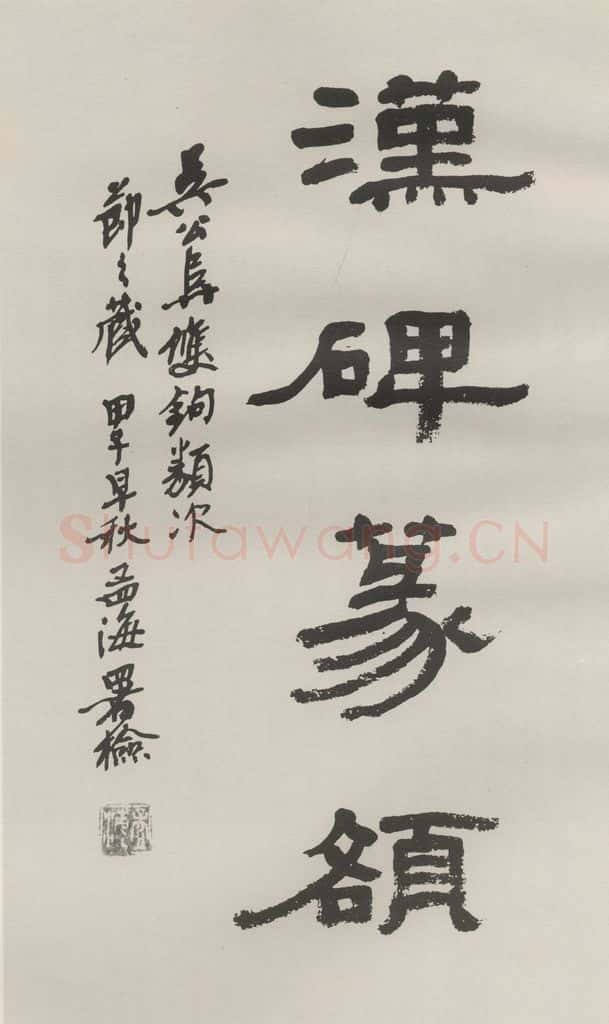 漢碑篆額
吳公阜雙鉤類次
節之藏 早秋 孟海署檢
Shufawang.CN